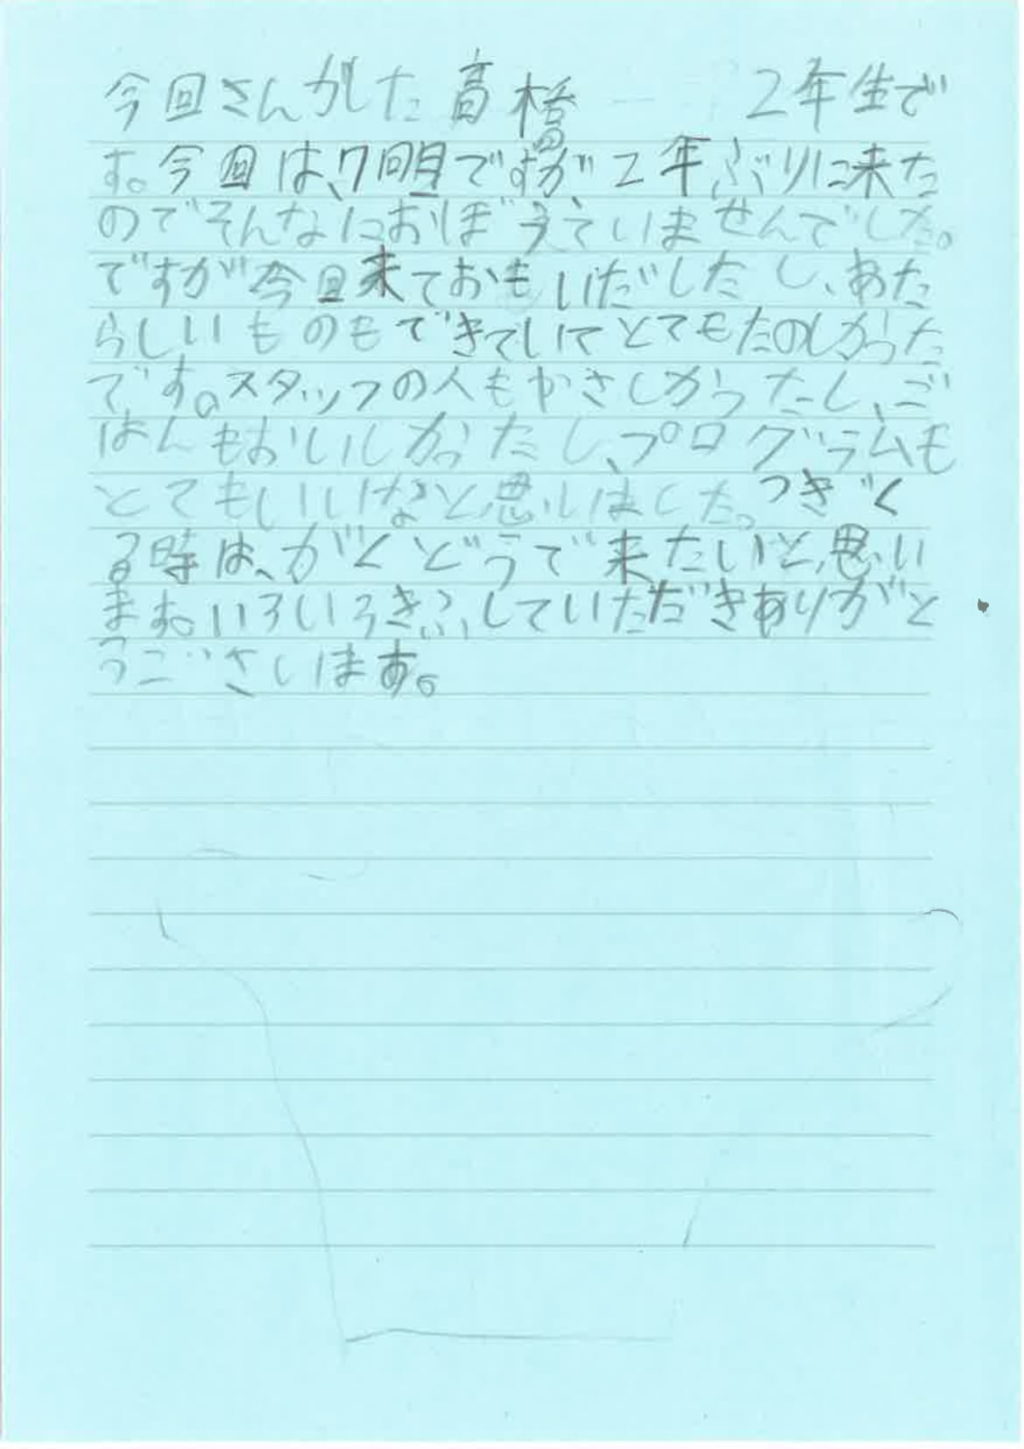 今回さんかした高橋 2年生で
す。今回は、7回目ですが2年ぶりに来た
のでそんなにおぼえていませんでした。
ですが今回来ておもいだしたし、あた
らしいものもできていてとてもたのしかった
です。スタッフの人もやさしかったし、ご
はんもおいしかったし、プログラムも
とてもいいなと思いました。つぎく
る時は、がくどうで来たいと思い
ます。いろいろきふしていただきありがと
うございます。